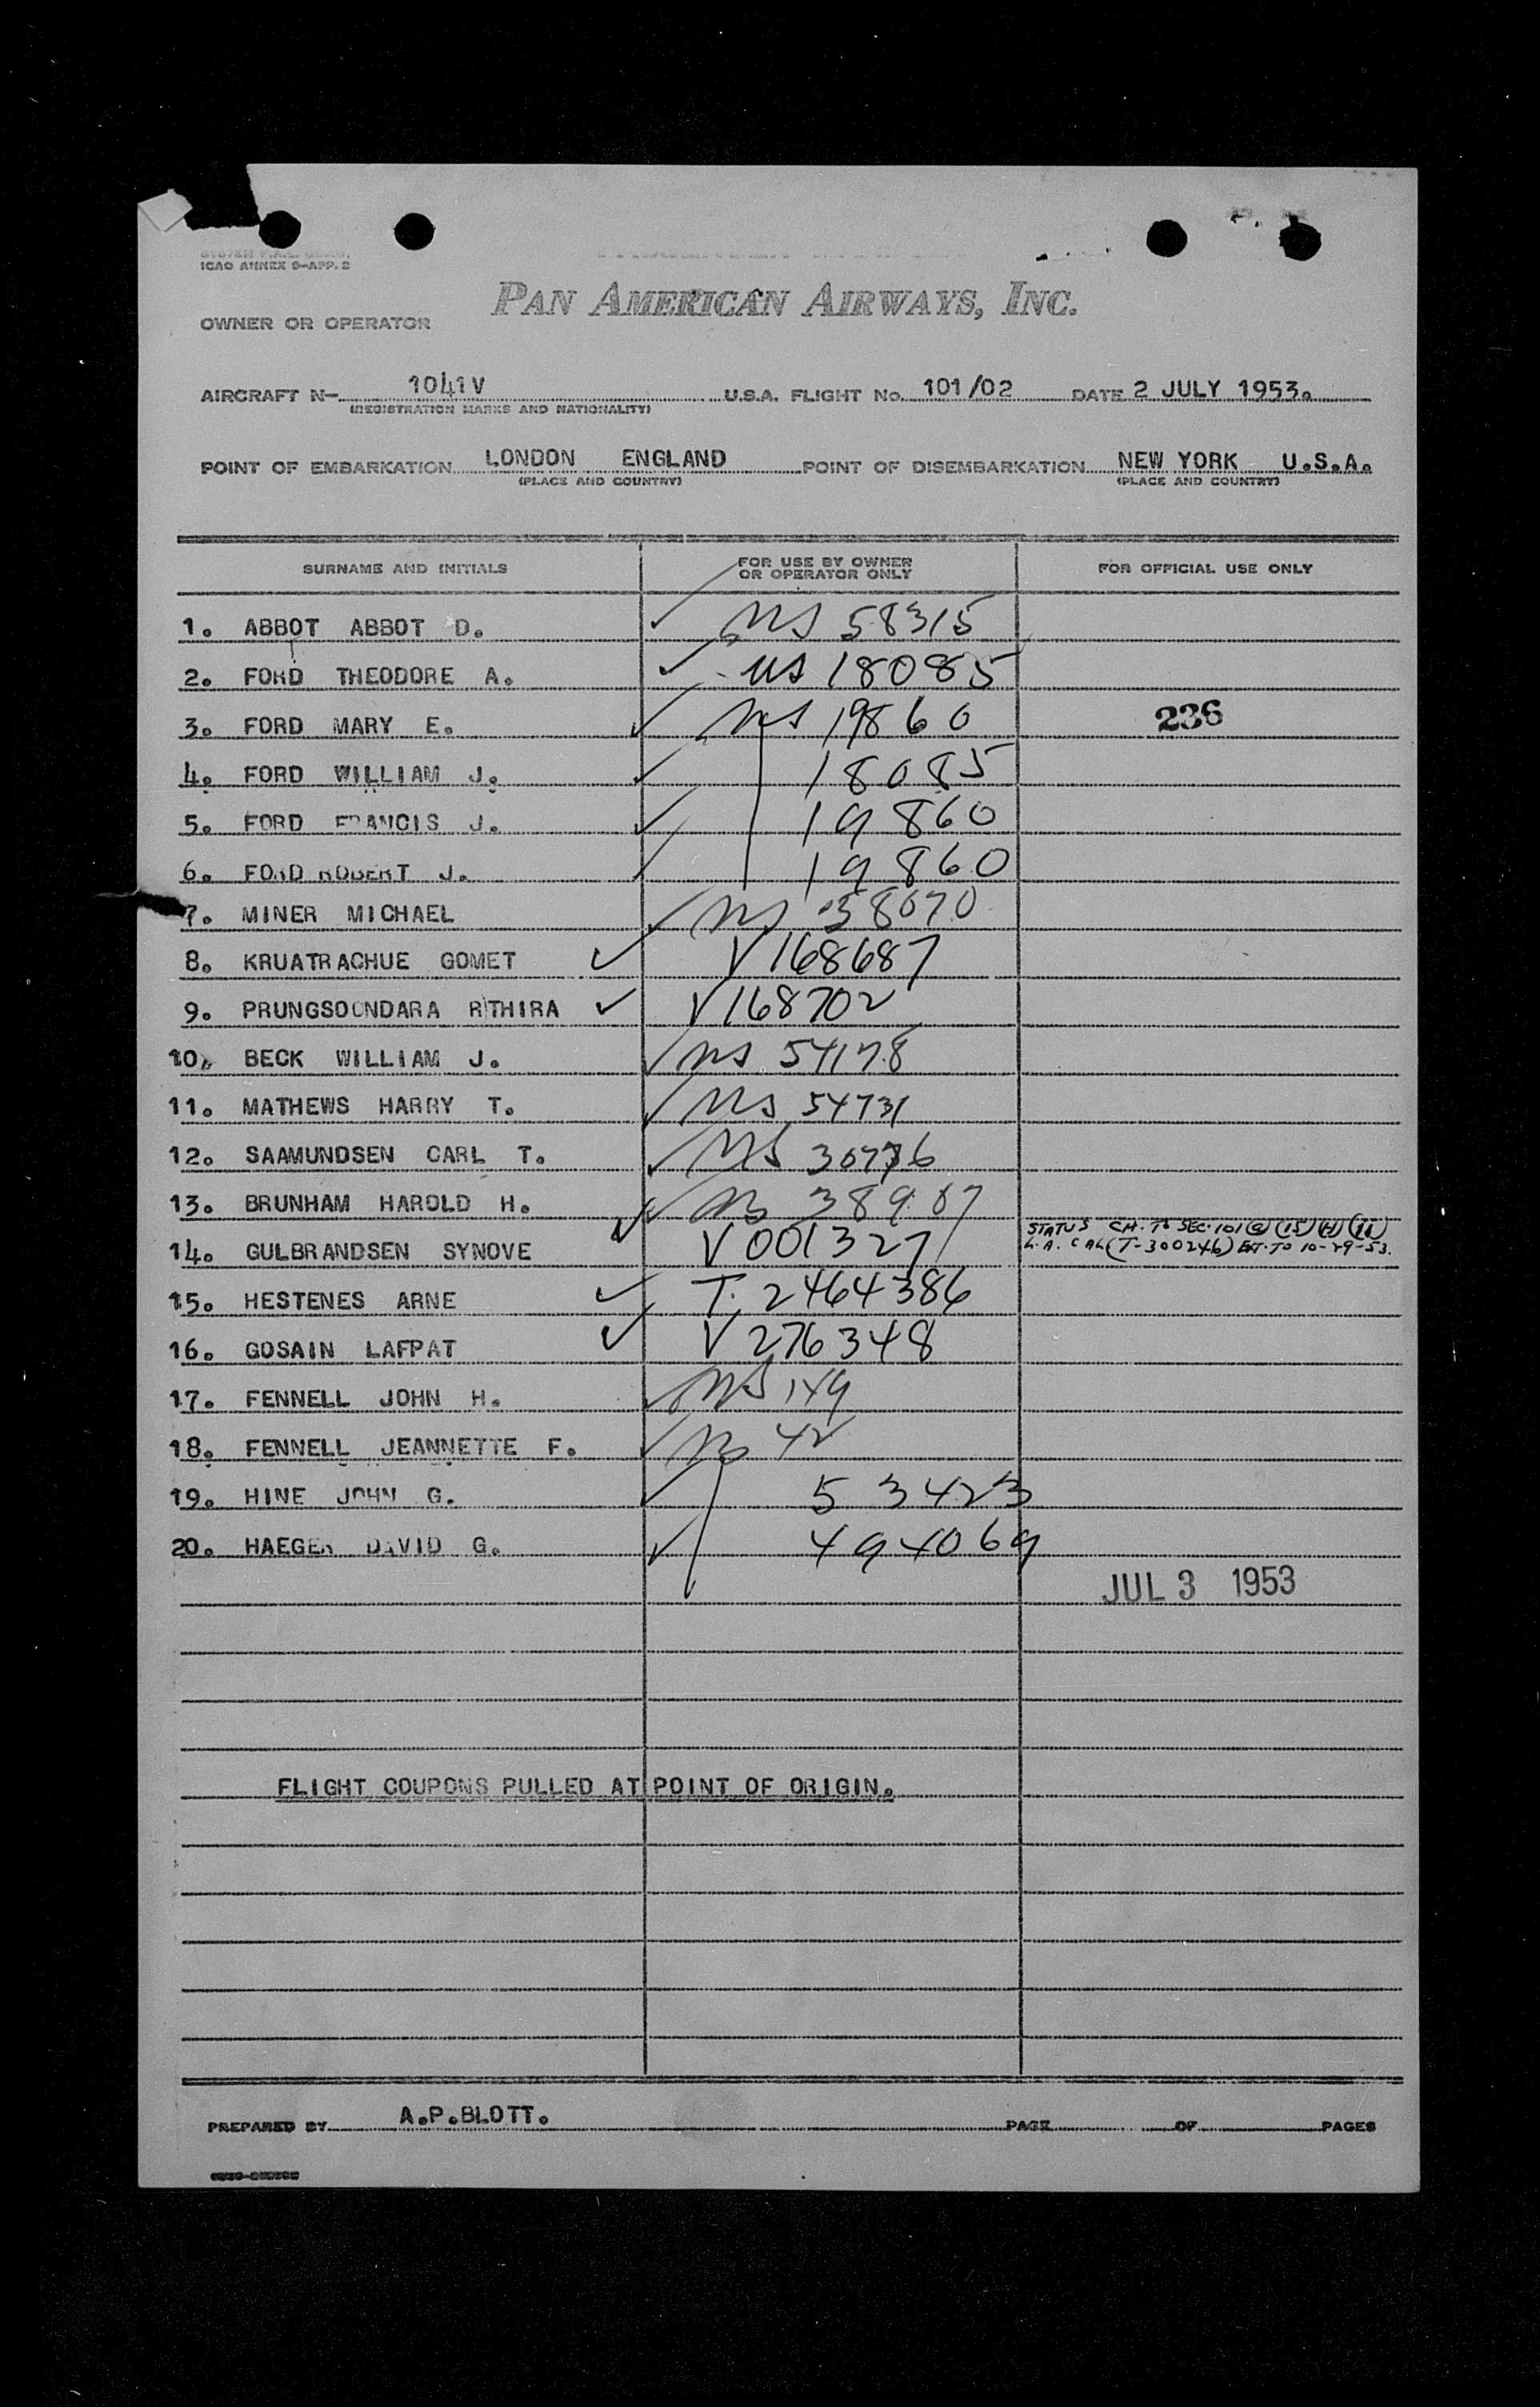 ICAO ANNEX 9-APP. 2
PAN AMERICAN AIRWAYS, INC.
OWNER OR OPERATOR
AIRCRAFT N- 1041V U.S.A. FLIGHT No. 101/02 DATE 2 JULY 1953.
(REGISTRATION MARKS AND NATIONALITY)
POINT OF EMBARKATION LONDON ENGLAND POINT OF DISEMBARKATION NEW YORK U.S.A.
(PLACE AND COUNTRY) (PLACE AND COUNTRY)
SURNAME AND INITIALS FOR USE BY OWNER OR OPERATOR ONLY FOR OFFICIAL USE ONLY
1. ABBOT ABBOT D. ✓ US 58315
2. FORD THEODORE A. ✓ US 18085
3. FORD MARY E. ✓ US 19860 236
4. FORD WILLIAM J. ✓ 18085
5. FORD FRANCIS J. ✓ 19860
6. FORD ROBERT J. ✓ 19860
7. MINER MICHAEL ✓ US 38070
8. KRUATRACHUE GOMET ✓ V168687
9. PRUNGSOONDARA RITHIRA ✓ V168702
10. BECK WILLIAM J. ✓ US 54178
11. MATHEWS HARRY T. ✓ US 54731
12. SAAMUNDSEN CARL T. ✓ US
13. BRUNHAM HAROLD H. ✓ US 38987
14. GULBRANDSEN SYNOVE ✓ V001327 STATUS CH. TO SEC. 101 (a) (15) (H)
L.A. CAL (T-300246) EXT. TO
15. HESTENES ARNE ✓ T. 2464386
16. GOSAIN LAFPAT ✓ V276348
17. FENNELL JOHN H. ✓ US 149
18. FENNELL JEANNETTE F. ✓ US 42
19. HINE JOHN G. ✓ 53423
20. HAEGER DAVID G. ✓ 494069
JUL 3 1953
FLIGHT COUPONS PULLED AT POINT OF ORIGIN.
PREPARED BY A.P.BLOTT. PAGE OF PAGES